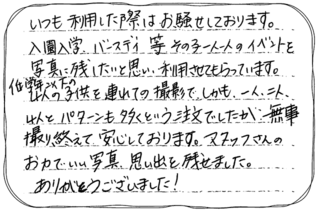 いつも利用した際はお騒せしております。
入園入学、バースディ等その子一人一人のイベントを
写真に残したいと思い、利用させてもらっています。
低学年以下の
4人の子供を連れての撮影で、しかも、一人、二人、
4人とパターンも多くという注文でしたが、無事
撮り終えて安心しております。スタッフさんの
お力でいい写真、思い出を残せました。
ありがとうございました!